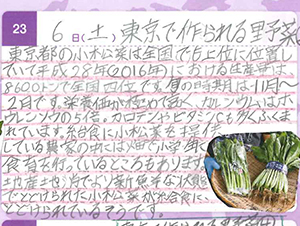 23
6日(土) 東京で作られる野菜
東京都の小松菜は全国でも上位に位置し
ていて平成28年(2016年)における生産量は
8600トンで全国四位です。旬の時期は11月〜
2月です。栄養価が極めて高く、カルシウムはホ
ウレンソウの5倍。カロテンやビタミンCも多くふくま
れています。給食に小松菜を提供
している農家の中には畑で小学生に
食育を行っているところもあります。
地産地消でより新鮮な状態
でとどけられた小松菜が給食に
とどけられているそうです。